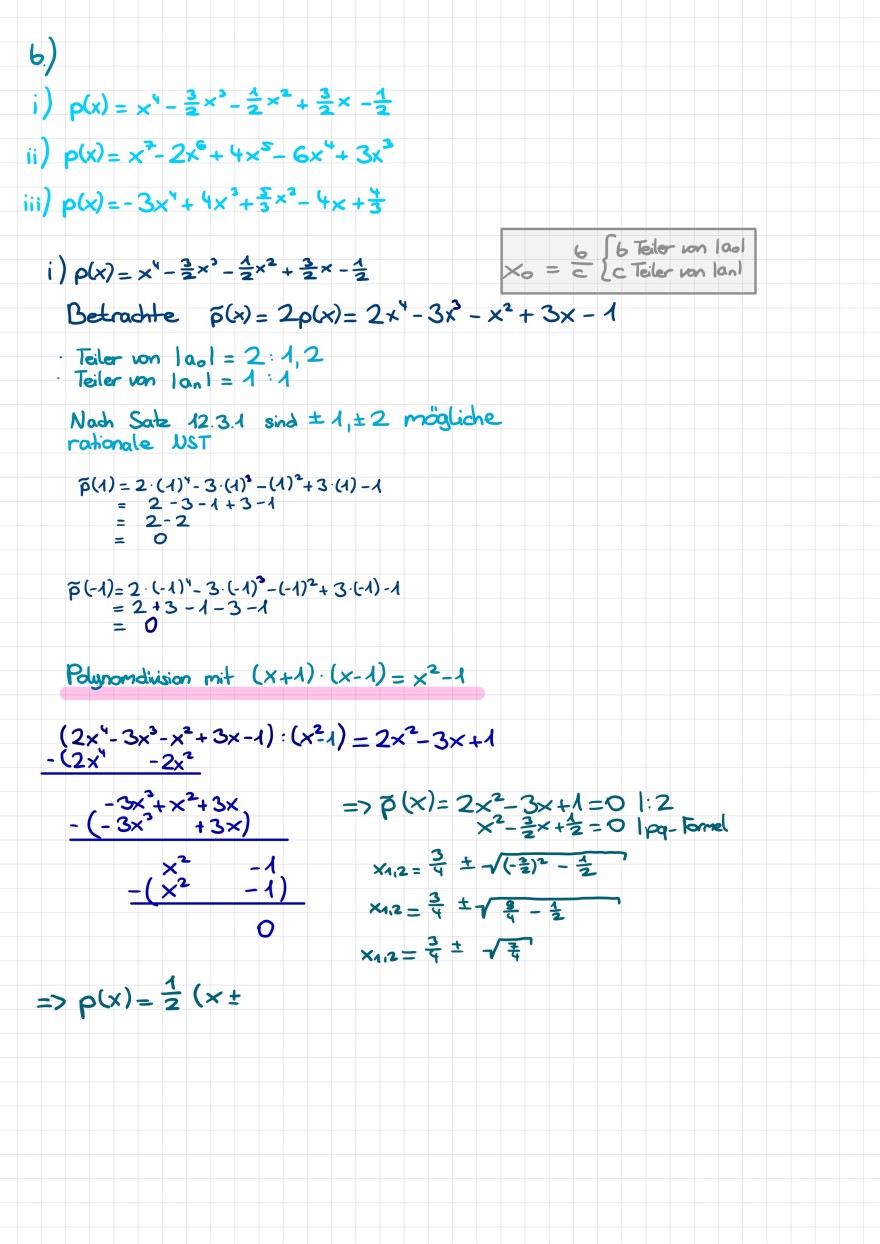 6.)
i) p(x) = x⁴ - 3/2 x³ - 1/2 x² + 3/2 x - 1/2
ii) p(x) = x⁷ - 2x⁶ + 4x⁵ - 6x⁴ + 3x³
iii) p(x) = -3x⁴ + 4x³ + 5/3 x² - 4x + 4/3
x₀ = b/c { b Teiler von |a₀|
c Teiler von |aₙ|
i) p(x) = x⁴ - 3/2 x³ - 1/2 x² + 3/2 x - 1/2
Betrachte p̃(x) = 2p(x) = 2x⁴ - 3x³ - x² + 3x - 1
· Teiler von |a₀| = 2 : 1, 2
· Teiler von |aₙ| = 1 : 1
Nach Satz 12.3.1 sind ±1, ±2 mögliche
rationale NST
p̃(1) = 2·(1)⁴ - 3·(1)³ - (1)² + 3·(1) - 1
= 2 - 3 - 1 + 3 - 1
= 2 - 2
= 0
p̃(-1) = 2·(-1)⁴ - 3·(-1)³ - (-1)² + 3·(-1) - 1
= 2 + 3 - 1 - 3 - 1
= 0
Polynomdivision mit (x+1)·(x-1) = x² - 1
(2x⁴ - 3x³ - x² + 3x - 1) : (x² - 1) = 2x² - 3x + 1
-(2x⁴ - 2x²
-3x³ + x² + 3x
-(-3x³ + 3x)
x² - 1
-(x² - 1)
0
=> p̃(x) = 2x² - 3x + 1 = 0 |:2
x² - 3/2 x + 1/2 = 0 | pq-Formel
x₁,₂ = 3/4 ± √((-3/2)² - 1/2)
x₁,₂ = 3/4 ± √(9/4 - 1/2)
x₁,₂ = 3/4 ± √(7/4)
=> p(x) = 1/2 (x ±